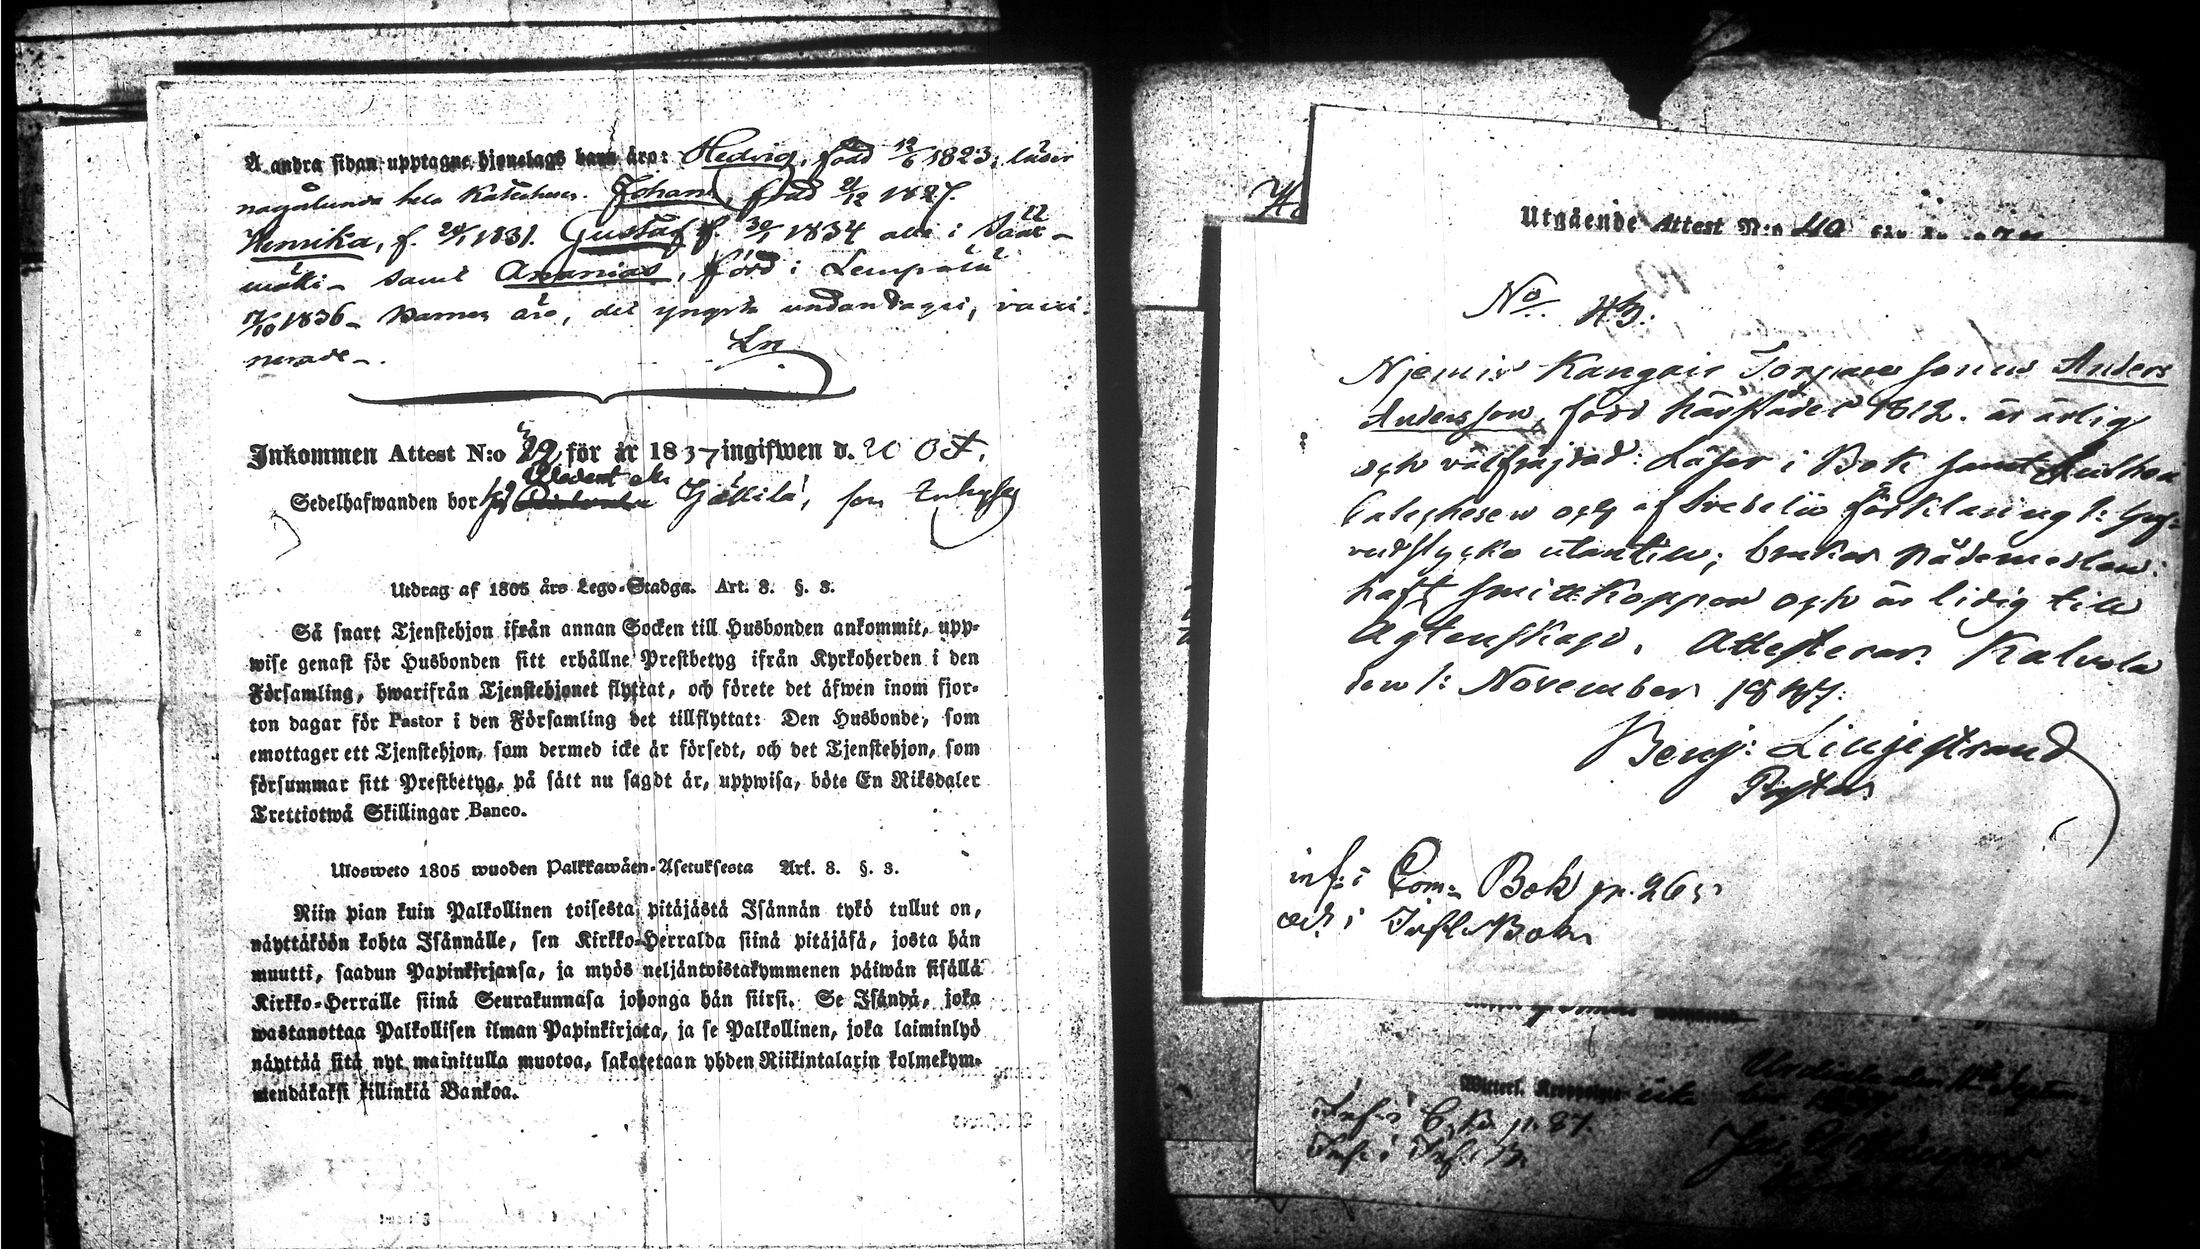 Å andra sidan upptagne hjonelags barn äro: Hedvig, född 12/6 1823, läser
någålunda hela Katechesen. Johan, född 21/12 1827.
Henrika, f. 20/1 1831. Gustaf f. 30/1 1834 alla i
samt Ananias, född i Lempälä
17/10 1836 - Barnen äro, det yngsta undantaget, vacci-
nerade -.
Ln
Inkommen Attest N:o 29 för år 1837 ingifwen d. 20 Oct.
Sedelhafwanden bor
Utdrag af 1805 års Lego-Stadga. Art. 8. §. 3.
Så snart Tjenstehjon ifrån annan Socken till Husbonden ankommit, upp-
wise genast för Husbonden sitt erhållne Prestbetyg ifrån Kyrkoherden i den
Församling, hwarifrån Tjenstehjonet flyttat, och förete det äfwen inom fjor-
ton dagar för Pastor i den Församling det tillflyttat: Den Husbonde, som
emottager ett Tjenstehjon, som dermed icke är försedt, och det Tjenstehjon, som
försummar sitt Prestbetyg, på sätt nu sagdt är, uppwisa, böte En Riksdaler
Trettiotwå Skillingar Banco.
Ulosweto 1805 wuoden Palkkawäen-Asetuksesta Art. 8. §. 3.
Niin pian kuin Palkollinen toisesta pitäjästä Isännän tykö tullut on,
näyttäköön kohta Isännälle, sen Kirkko-Herralda siinä pitäjäsä, josta hän
muutti, saadun Papinkirjansa, ja myös neljäntoistakymmenen päiwän sisällä
Kirkko-Herralle siinä Seurakunnasa johonga hän siirsi. Se Isändä, joka
wastanottaa Palkollisen ilman Papinkirjata, ja se Palkollinen, joka laiminlyö
näyttää sitä nyt mainitulla muotoa, sakotetaan yhden Riikintalarin kolmekym-
mendäkaksi killinkiä Bankoa.
Utgående Attest N:o 40
No. 43:
Njemis Kangais Torpare sonen Anders
Andersson, född härstädes 1812. är ärlig
och välfräjdad: Läser i Bok samt Lutheri
Catechesen och af Svebelii förklaring 1: huf-
vudstycke utantill; brukar Nådemedlen:
haft smittkoppor och är lidig till
Agtenskap. Attesterar. Kalvola
den 1: November 1837.
Benj: Liljestrand
Pastor
inf: i Com: Bok p. 265
och i Infl. Boken
Witterl.
Inf: i C. B. p. 87.
Inf. i Inf. B.